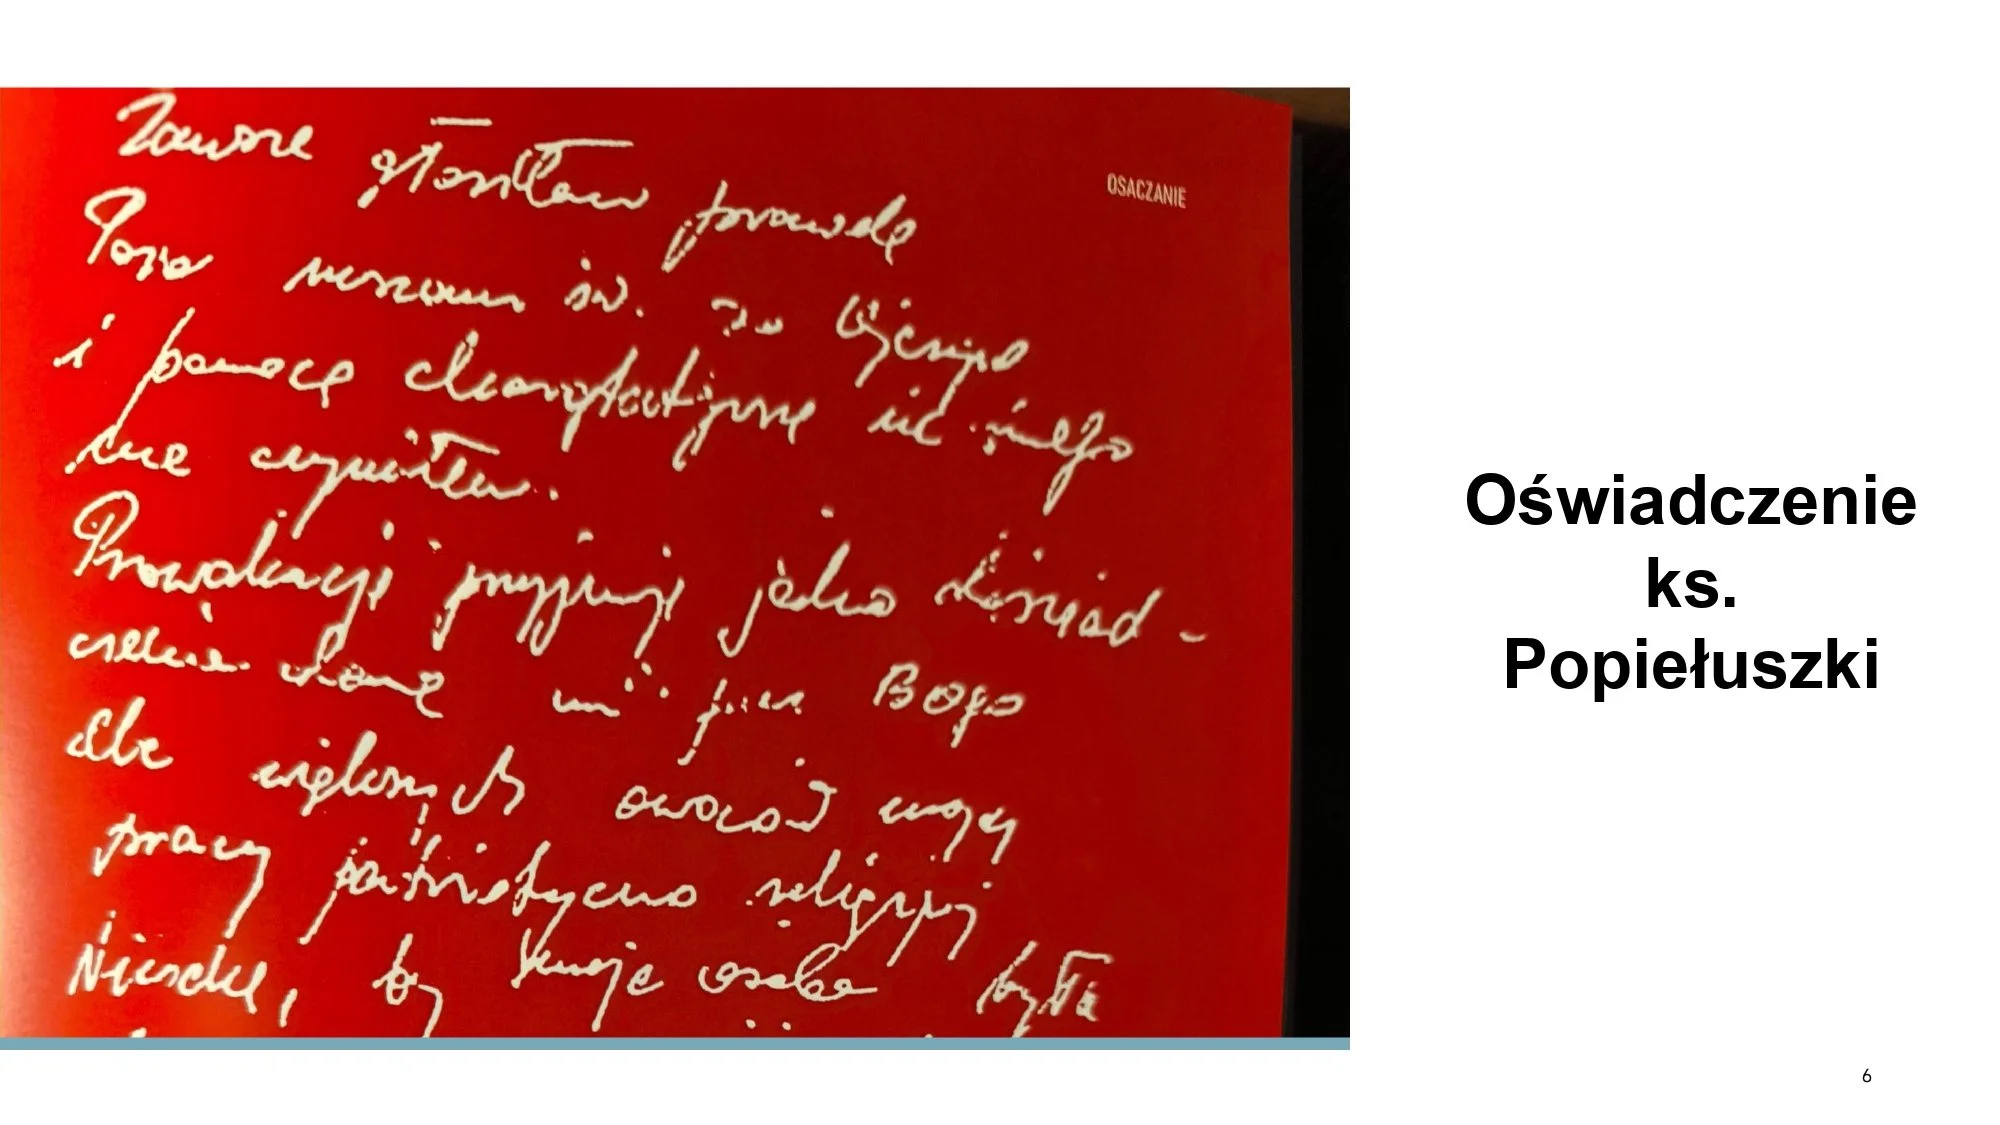 Zawsze głosiłem prawdę
OSACZANIE
Poza mszami św. za Ojczyznę
i pomocą charytatywną nic innego
nie czyniłem.
Prowokację przyjmuję jako doświad-
czenie dane mi przez Boga
dla większych owoców mojej
pracy patriotyczno religijnej
Nie chcę, by moja osoba była
Oświadczenie
ks.
Popiełuszki
6